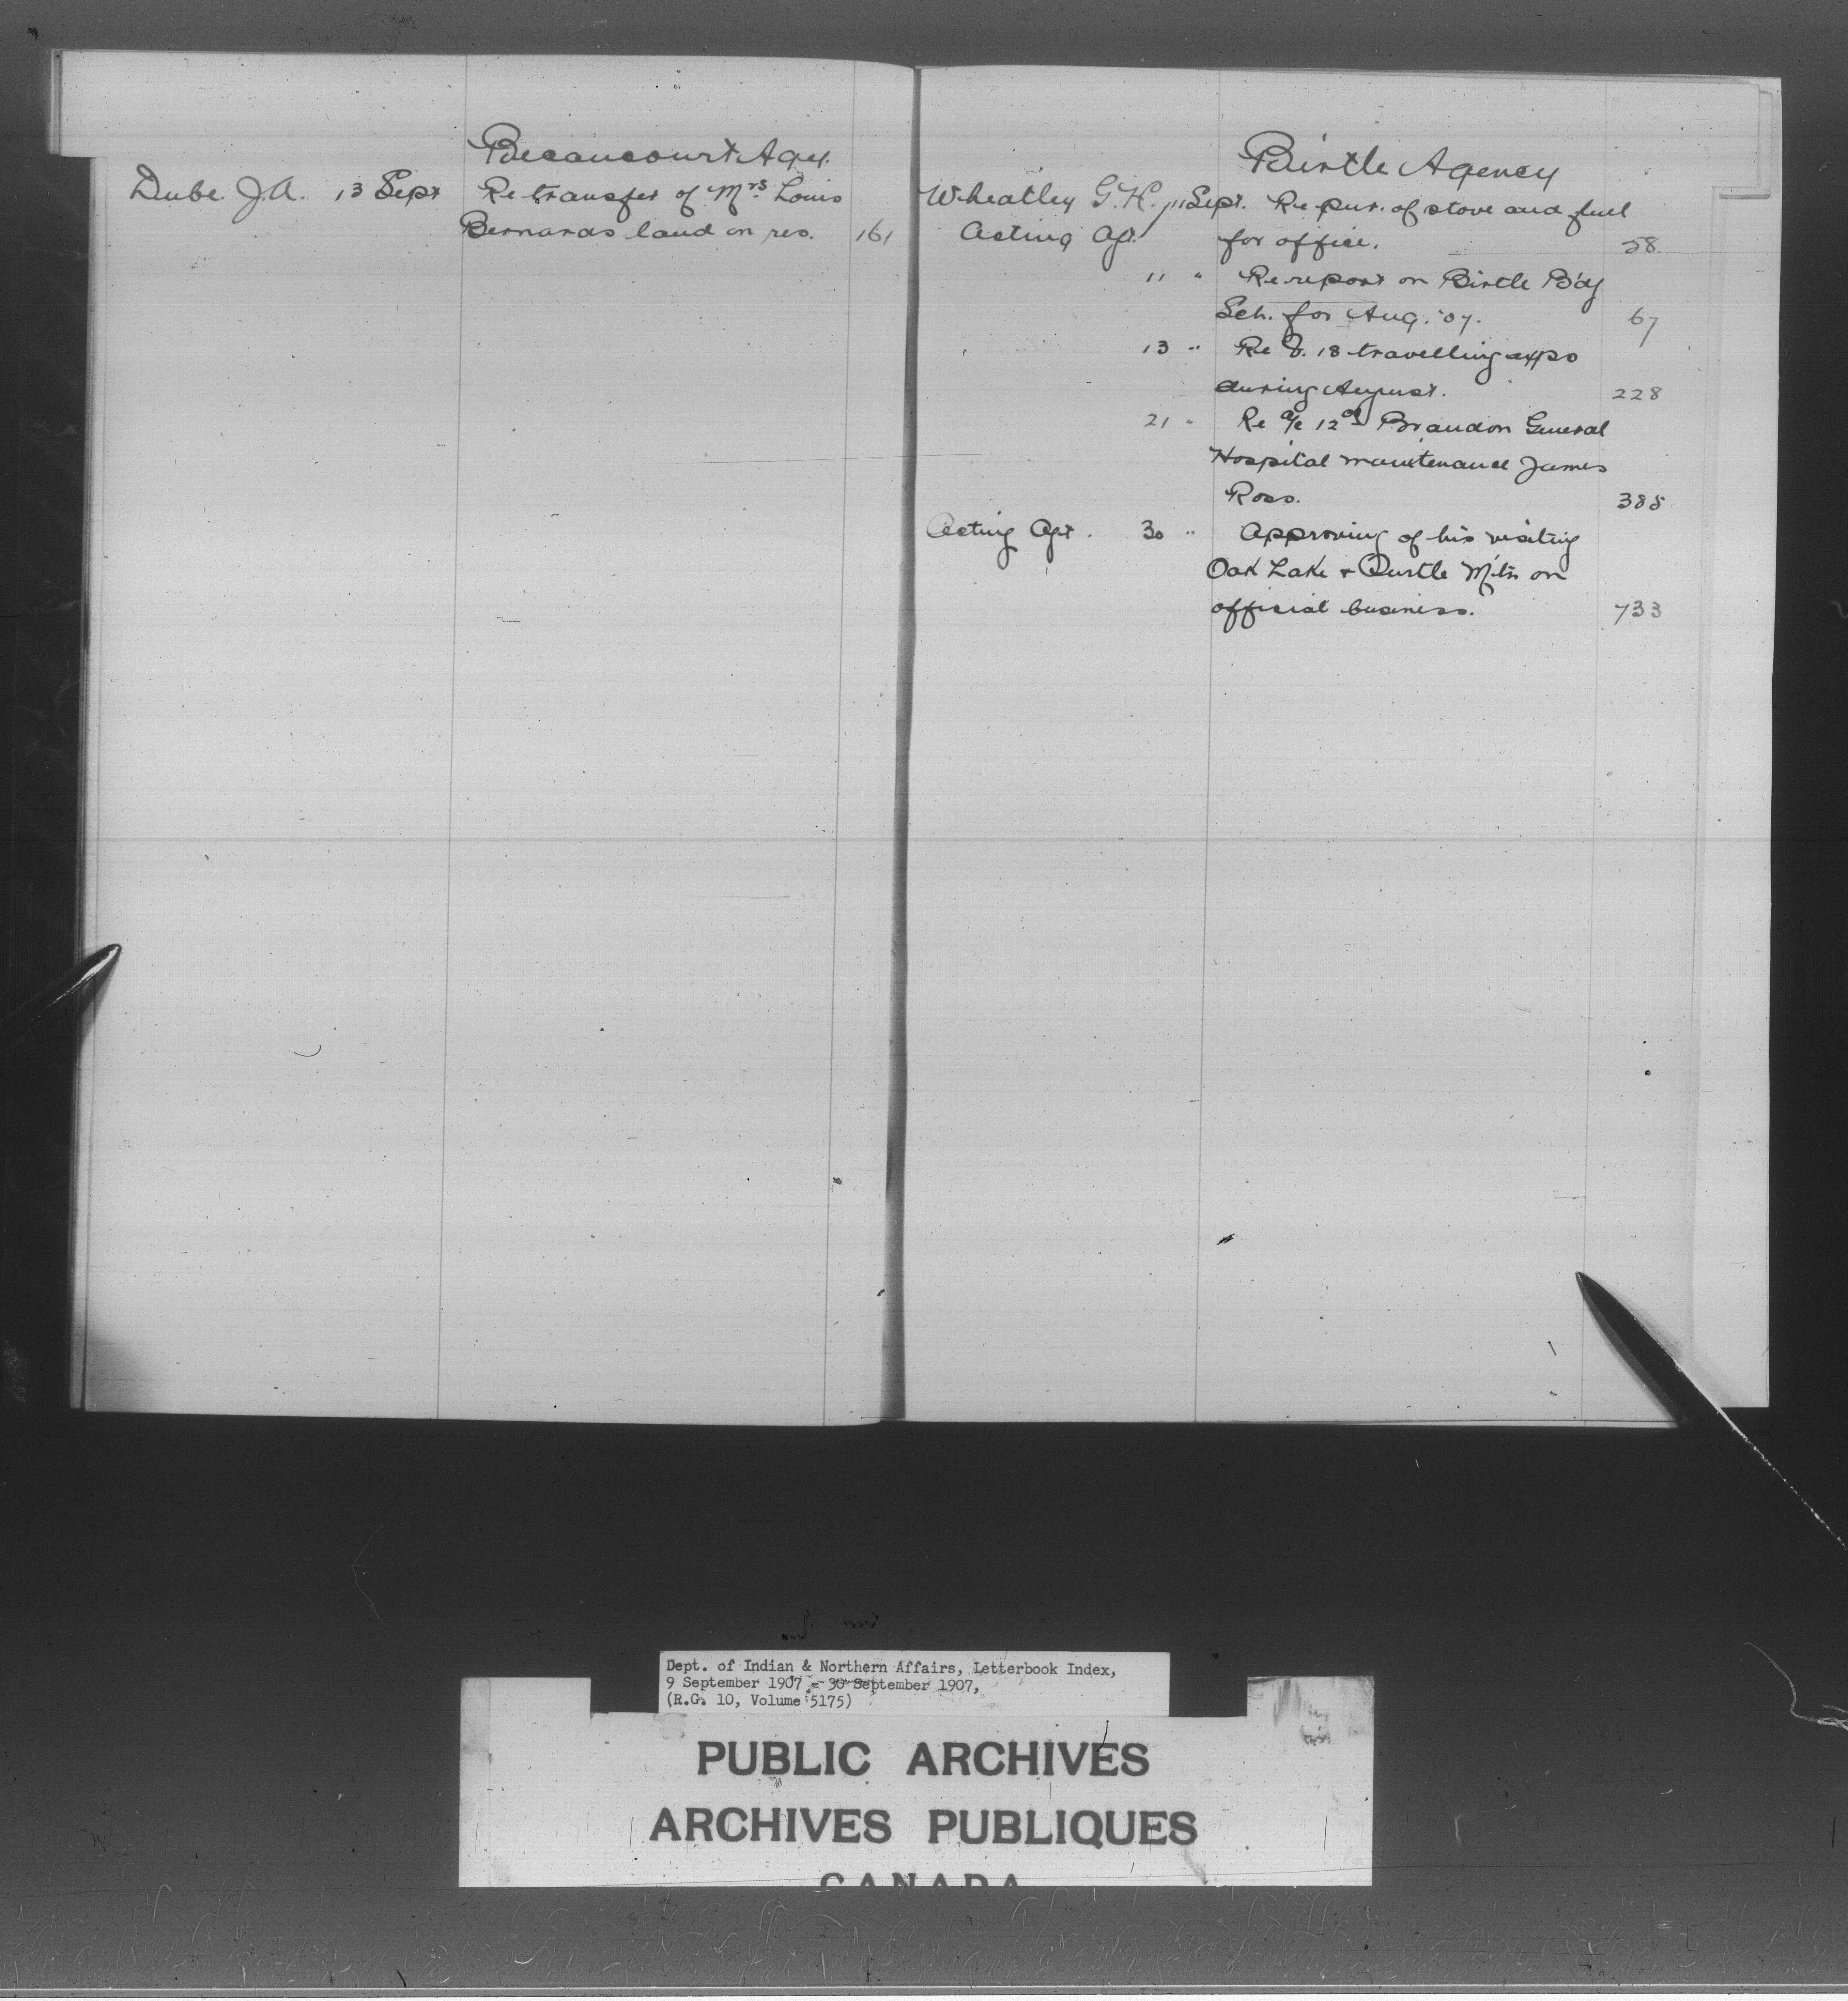 Becancourt Agcy.
Dube. J.A. 13 Sept Re transfer of Mrs. Louis
Bernards land on res. 161
Birtle Agency
Wheatley G.H. 11 Sept. Re pur. of stove and fuel
Acting Agt. for office. 58.
11 " Re report on Birtle B'dg
Sch. for Aug. '07. 67
13 " Re V. 18 travelling exps
during August. 228
21 " Re a/c 12 Brandon General
Hospital maintenance James
Ross. 388
Acting Agt. 30 " Approving of his visiting
Oak Lake & Turtle M'tn on
official business. 733
Dept. of Indian & Northern Affairs, Letterbook Index,
9 September 1907 - 30 September 1907,
(R.G. 10, Volume 5175)
PUBLIC ARCHIVES
ARCHIVES PUBLIQUES
CANADA